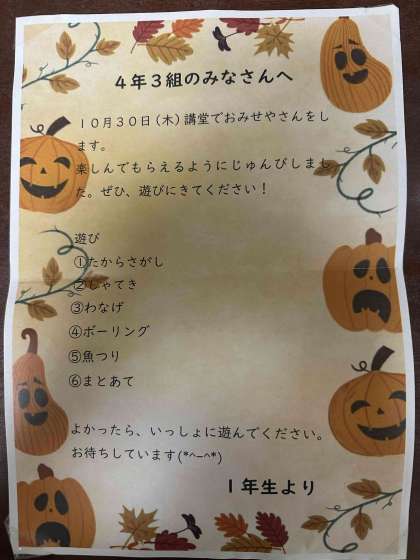 4年3組のみなさんへ
10月30日(木)講堂でおみせやさんをし
ます。
楽しんでもらえるようにじゅんびしまし
た。ぜひ、遊びにきてください!
遊び
①たからさがし
②しゃてき
③わなげ
④ボーリング
⑤魚つり
⑥まとあて
よかったら、いっしょに遊んでください。
お待ちしています(*^-^*)
1年生より